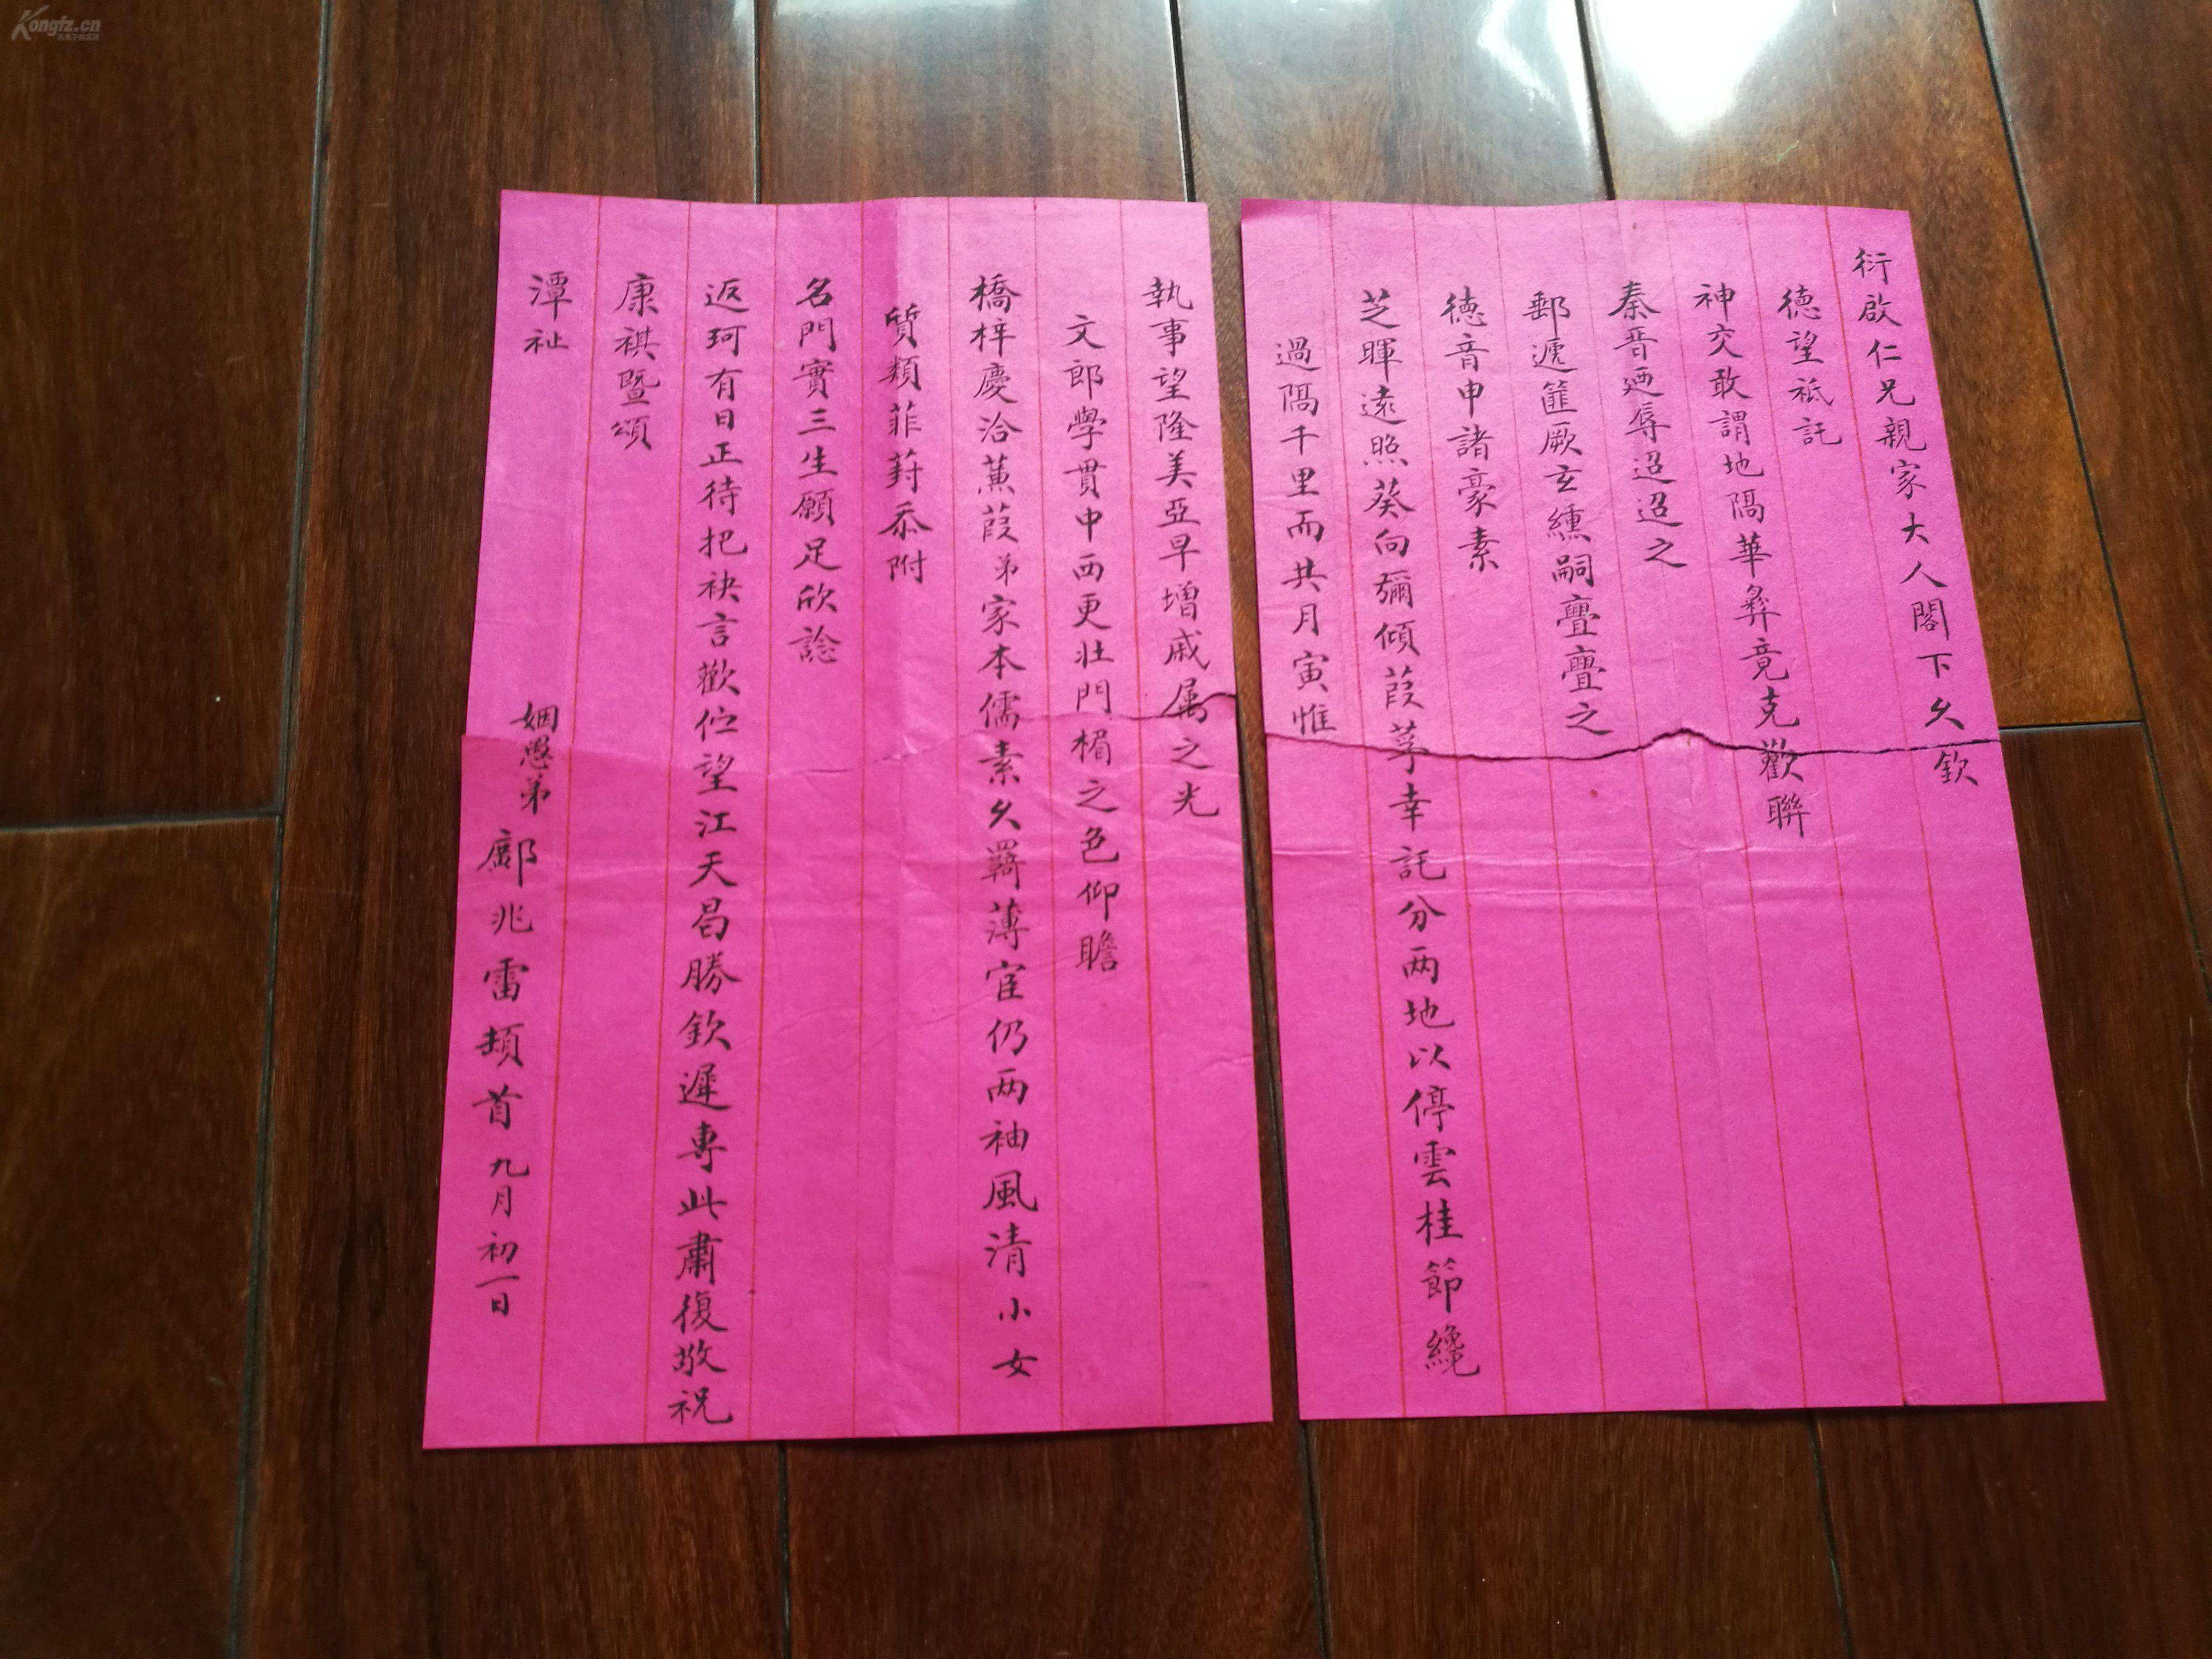 衍啟仁兄親家大人閣下久欽
德望祗託
神交敢謂地隔華彝竟克歡聯
秦晋廼辱迢迢之
郵遞篚厥玄纁嗣亹亹之
德音申諸豪素
芝暉遠照葵向彌傾葭莩幸託分两地以停雲桂節纔
過隔千里而共月寅惟
執事望隆美亞早增戚属之光
文郎學貫中西更壯門楣之色仰瞻
橋梓慶洽蕙葭弟家本儒素久羇薄宦仍两袖風清小女
質類菲葑忝附
名門實三生願足欣諗
返珂有日正待把袂言歡伫望江天曷勝欽遲専此肅復敬祝
康祺暨頌
潭祉
姻愚弟鄺兆雷頓首九月初一日
Kongfz.cn